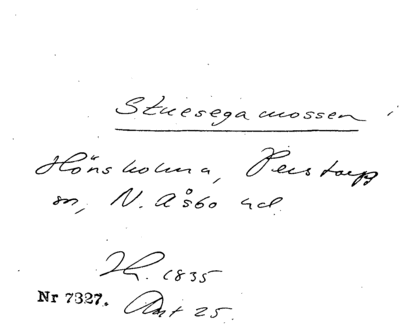 Stuesega mossen
Hönsholma, Perstorps
sn, N. Åsbo hd
1835
Nr 7327. Akt 25.